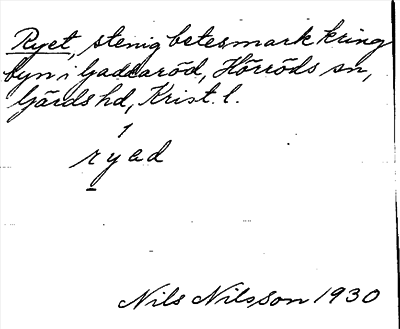 Ryet, stenig betesmark kring
byn i Gaddaröd, Hörröds sn,
Gärds hd, Krist. l.
1
ryad
Nils Nilsson 1930